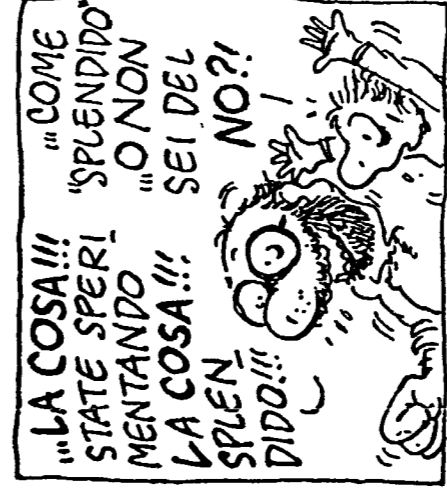 ...LA COSA!!!
STATE SPERI
MENTANDO
LA COSA!!!.
SPLEN
DIDO!!!
...COME
"SPLENDIDO"
...O NON
SEI DEL
NO?!